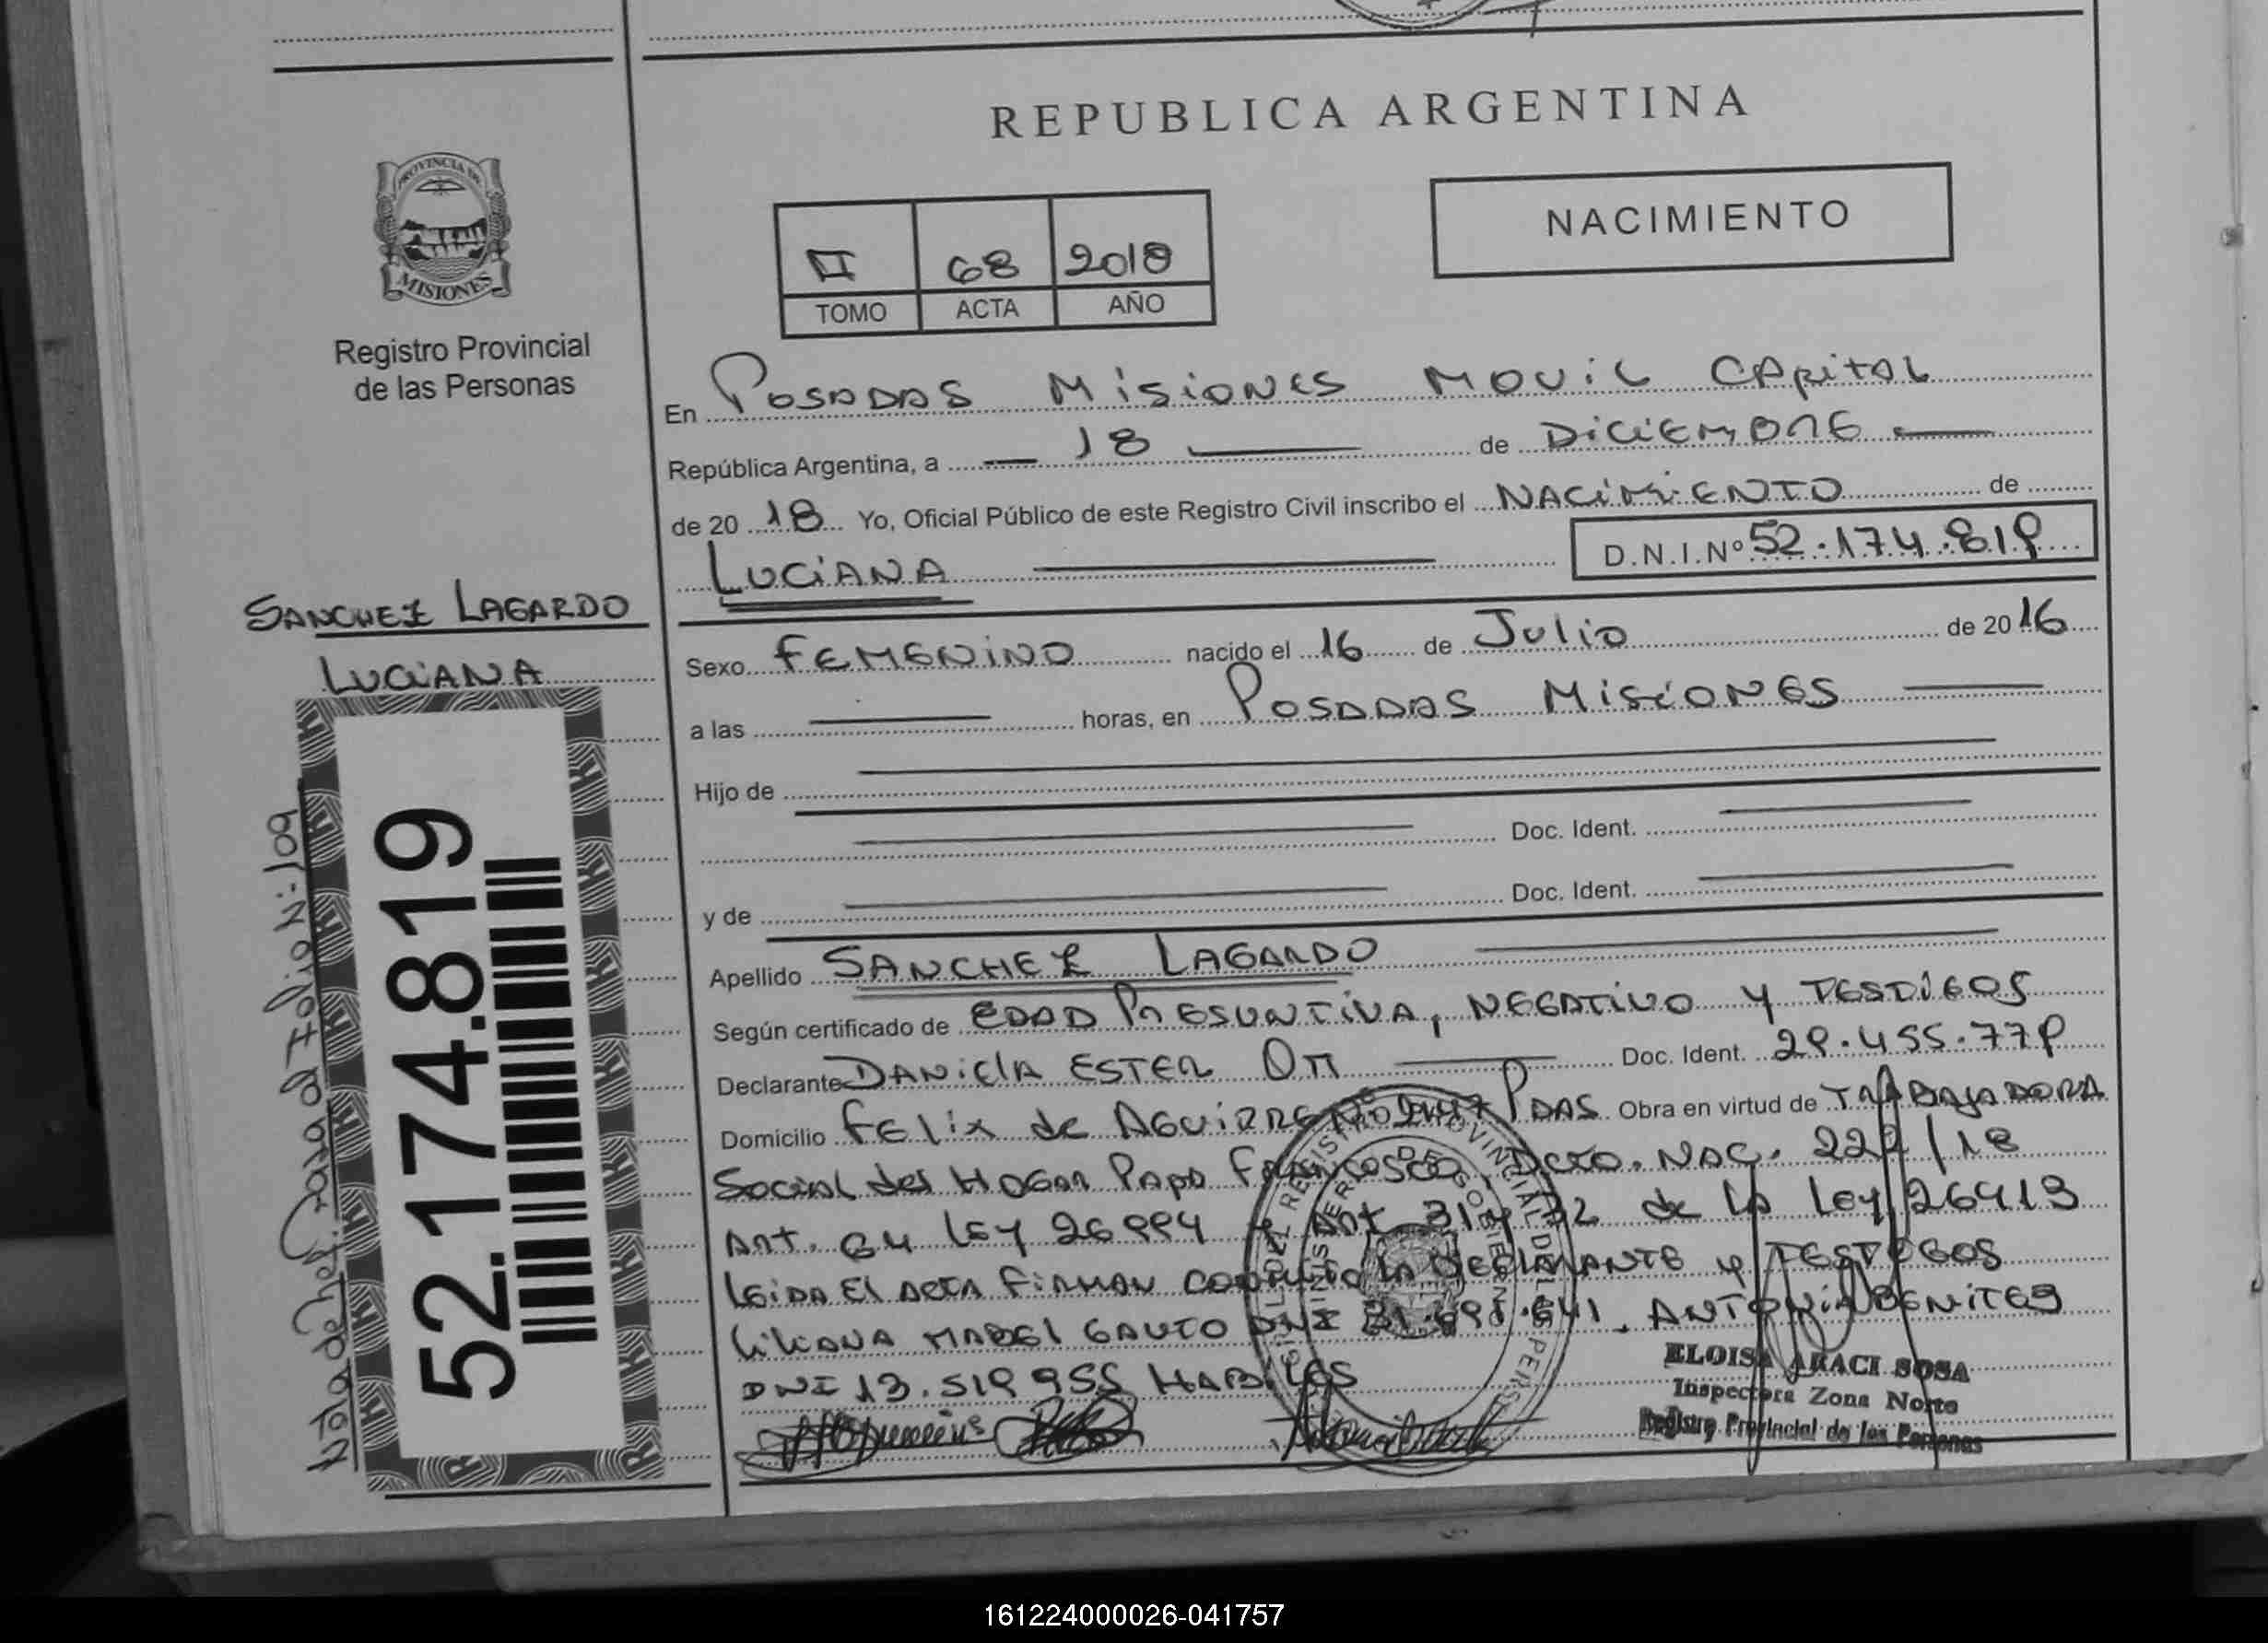 REPUBLICA ARGENTINA
PROVINCIA DE
MISIONES
Registro Provincial
de las Personas
NACIMIENTO
II 68 2018
TOMO ACTA AÑO
En POSADAS MISIONES MOVIL CAPITAL
República Argentina, a 18 de DICIEMBRE
de 20 18 Yo, Oficial Público de este Registro Civil inscribo el NACIMIENTO de
LUCIANA D.N.I.Nº 52.174.819
SANCHEZ LAGARDO
LUCIANA
Sexo FEMENINO nacido el 16 de Julio de 20 16
a las horas, en POSADAS MISIONES
Hijo de
Doc. Ident.
y de Doc. Ident.
Apellido SANCHEZ LAGARDO
Según certificado de EDAD PRESUNTIVA, NEGATIVO Y TESTIGOS
Declarante DANIELA ESTER OTT Doc. Ident. 29.455.779
Domicilio FELIX de AGUIRRE PDAS Obra en virtud de TRABAJADORA
Social del HOGAR PAPA FRANCISCO, DCTO. NAC. 222/18
ART. 64 LEY 26994 Y ART. 31 Y 32 de LA LEY 26413
LEIDA El ACTA FIRMAN CONMIGO LA DECLARANTE y TESTIGOS
LILIANA MABEL GAUTO DNI ANTONIA BENITES
DNI 13.519 955 HABILES
ELOISA ARACI SOSA
Inspectora Zona Norte
Registro Provincial de las Personas
52.174.819
Nota de Ref. Folio N: 109
161224000026-041757